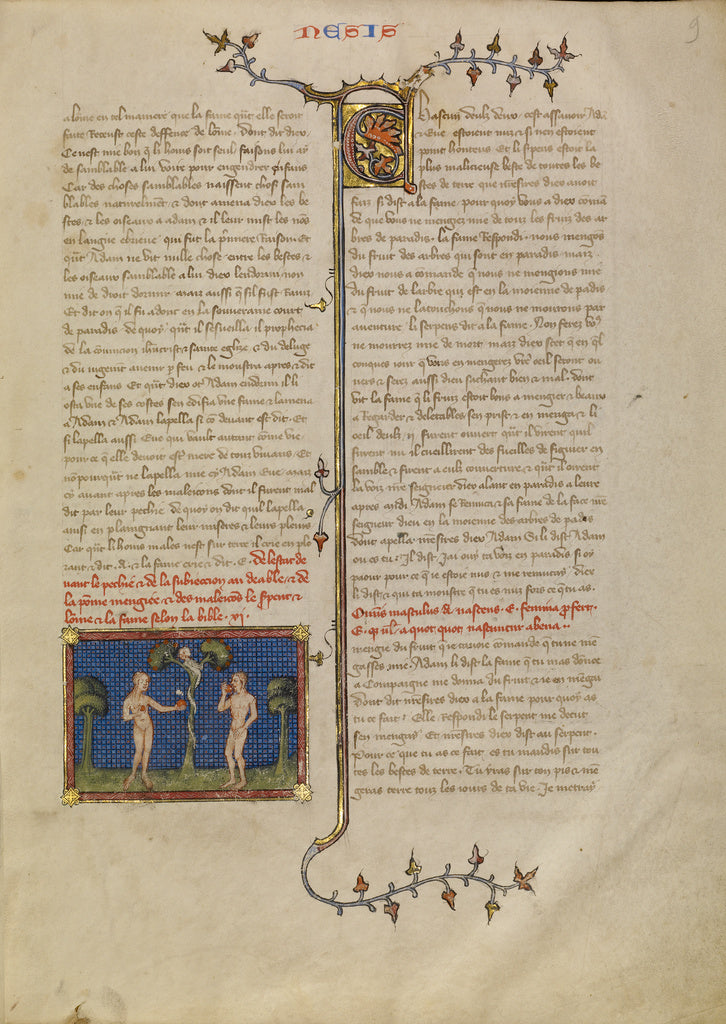 NESIS
9
a lome en tel maniere que la fame qñt elle seroit
faite Receust ceste deffence de lôme. dont dit dieu.
Ce nest mie bon q̃ li homs soit seul faisons lui ay
de samblable a lui voire pour engendrer
Car des choses samblables naissent chos sam
blables naturelmẽt ⁊ dont amena diex les be
stes ⁊ les oiseaux a adam ⁊ il leur mist les nôs
en langue ebrieue qui fut la pmiere Et
qñt Adam ne vit nulle chose entre les bestes ⁊
les oiseaux samblable a lui diex lendormi non
mie de droit dormir. maiz aussi q̃ sil fust Rauiz
Et dit on q̃ il fu adont en la souueraine court
de paradis. de quoy qñt il sesueilla il prophecia
de la ⁊ sainte eglise ⁊ du deluge
⁊ du iugemt auenir p feu ⁊ le moustra apres ⁊ dit
a ses enfans. Et qñt diex ot Adam endormi il li
osta vne de ses costes sen edifia vne fame ⁊ lamena
a Adam ⁊ Adam lapella si cõ deuant est dit. Et
si lapella aussi Eue qui vault autant come vie
pour ce q̃ elle deuoit est mere de touz viuans. Et
pourqñt ne lapella mie Adam Eue. maiz
cy auant apres les maleicons dont il furent mal
dit par leur pechie de quoy on dit quil lapella
ainsi en plaingnant leur miseres ⁊ leurs pleurs
Car qñt li homs males nest sur terre il crie en plo
rant ⁊ dit. A. ⁊ la fame crie ⁊ dit. E. de lestat de
uant le pechie ⁊ de la subiection au deable ⁊ de
la põme mengiee ⁊ des maleicõs le s̃pent ⁊
lôme ⁊ la fame selon la bible. vi.
Chascun deulz deux. cest assauoir Adã
⁊ Eue estoient nuz ⁊ si nen estoient
point honteus. Et li s̃pens estoit la
plus malicieuse beste de toutes les be
stes de terre que nr̃esires diex auoit
faiz si dist a la fame pour quoy vous a diex comã
de que vous ne mengiez mie de touz les fruiz des ar
bres de paradis. la fame Respondi. nous mengõs
du fruit des arbres qui sont en paradis. maiz
diex nous a comãde q̃ nous ne mengions mie
du fruit de larbre qui est en la moienne de padis
⁊ q̃ nous ne latouchons q̃ nous ne mourons par
auenture. li serpens dit a la fame. Non ferez vo9
ne mourrez mie de mort. maiz diex scet q̃ en q̃l
conques iour q̃ vous en mengerez vr̃e oeil seront ou
uers ⁊ serez aussi dieu sachant bien ⁊ mal. dont
vit la fame q̃ li fruiz estoit bons a mengier ⁊ beaux
a Regarder ⁊ delectables sen prist ⁊ en menga ⁊ li
oeil deulz .ij. furent ouuert qñt il virent quil
furent nu il cueillirent des fueilles de figuier en
samble ⁊ furent a eulz couuerture. ⁊ qñt il oirent
la voiz nr̃e seigneur diex alant en paradis a leure
apres midi. Adam se remuca ⁊ sa fame de la face nr̃e
seigneur dieu en la moienne des arbres de padis
dont apella nr̃esires diex Adam. Si li dist Adam
ou es tu. Il dist. Jai ouy ta voiz en paradis si oy
paour pour ce q̃ ie estoie nus ⁊ me remucay. diex
li dist ⁊ qui ta moustre q̃ tu es nuz fors ce q̃ tu as.
Omis masculus A. nascens. E. femina pfert.
E. a quot quot nascuntur ab eua.
mengie du fruit q̃ ie tauoie comande q̃ tu ne mẽ
gasses mie. Adam li dist. la fame q̃ tu mas donee
a Compaigne me donna du fruit ⁊ ie en mẽgai
dont dit nr̃esires diex a la fame pour quoy as
tu ce fait. Elle Respondi le serpent me deceut
sen mengay. Et nr̃esires diex dist au serpent.
Pour ce que tu as ce fait es tu maudis sur tou
tes les bestes de terre. Tu yras sur ton pis ⁊ mẽ
geras terre touz les iours de ta vie. Je metray